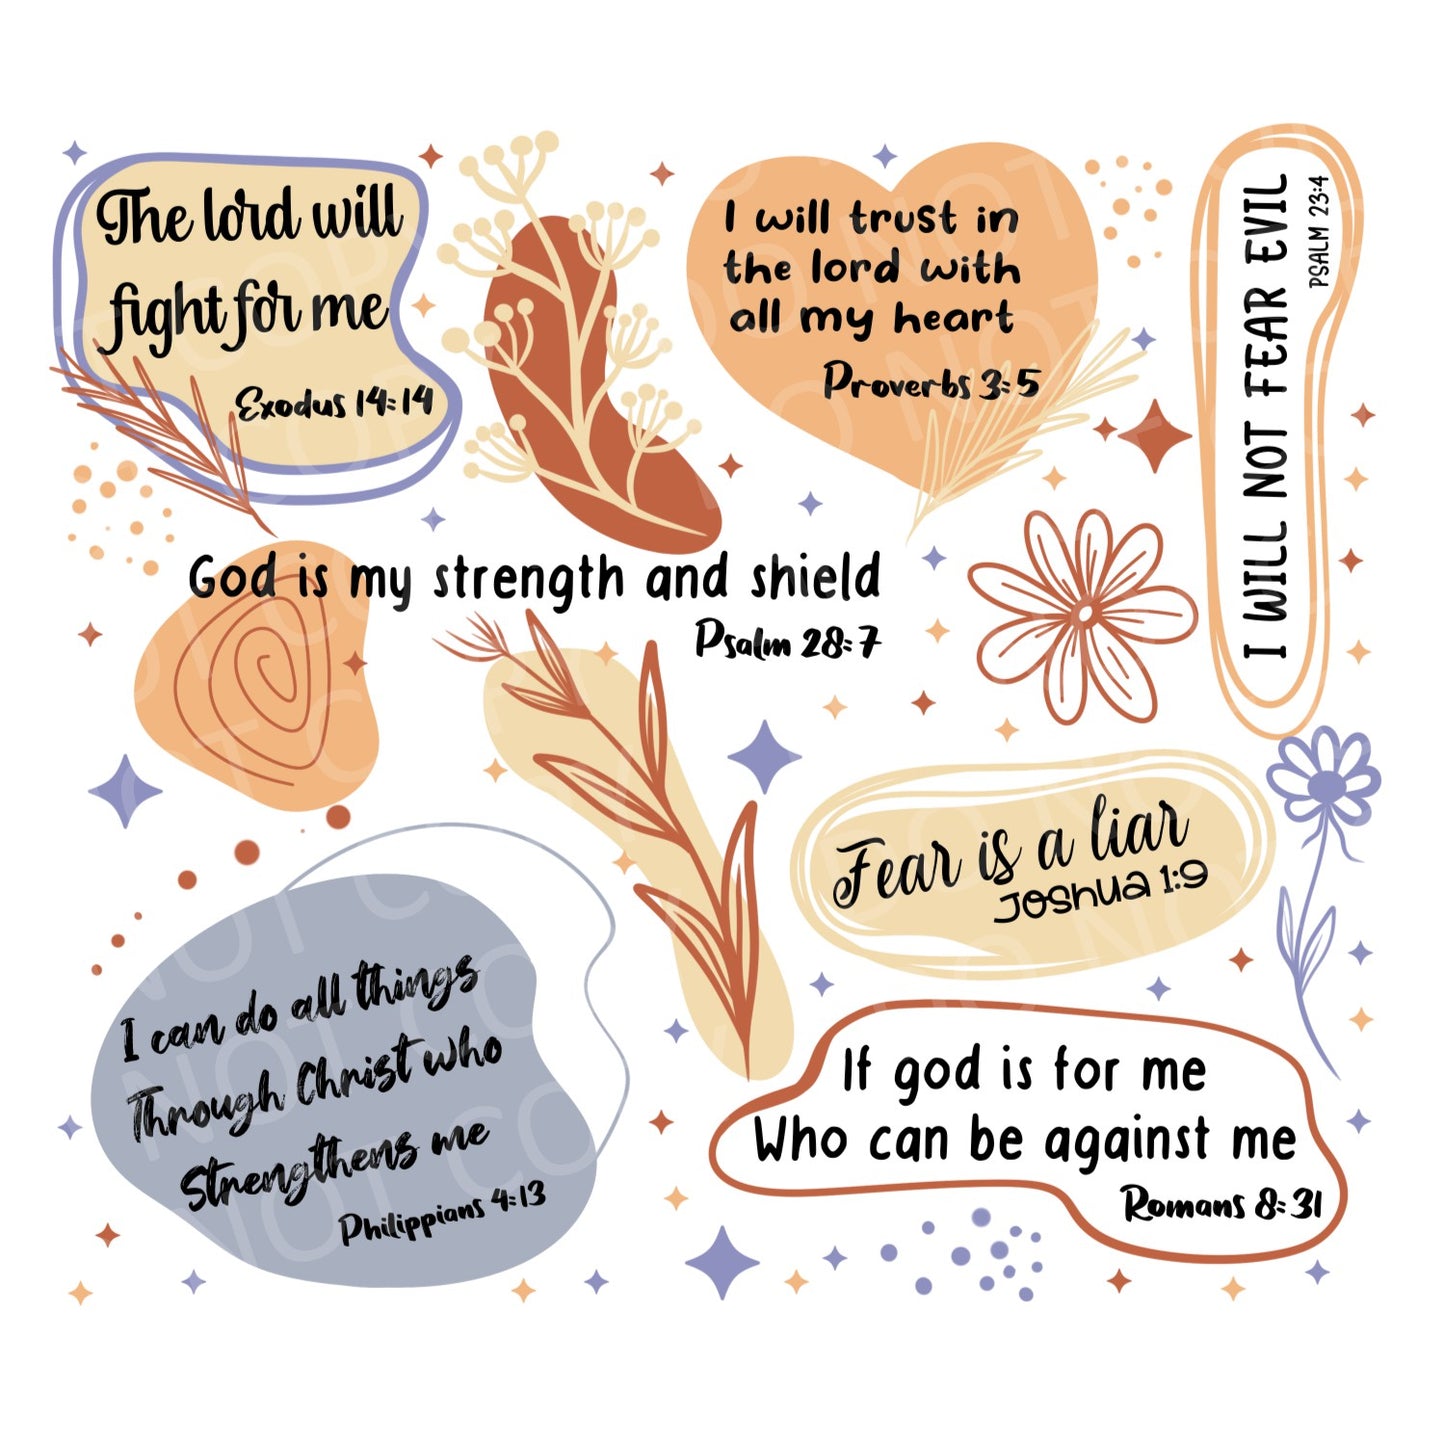 The lord will
fight for me
Exodus 14:14
I will trust in
the lord with
all my heart
Proverbs 3:5
I WILL NOT FEAR EVIL
PSALM 23:4
God is my strength and shield
Psalm 28:7
Fear is a liar
Joshua 1:9
I can do all things
Through Christ who
Strengthens me
Philippians 4:13
If god is for me
Who can be against me
Romans 8:31
DO NOT COPY